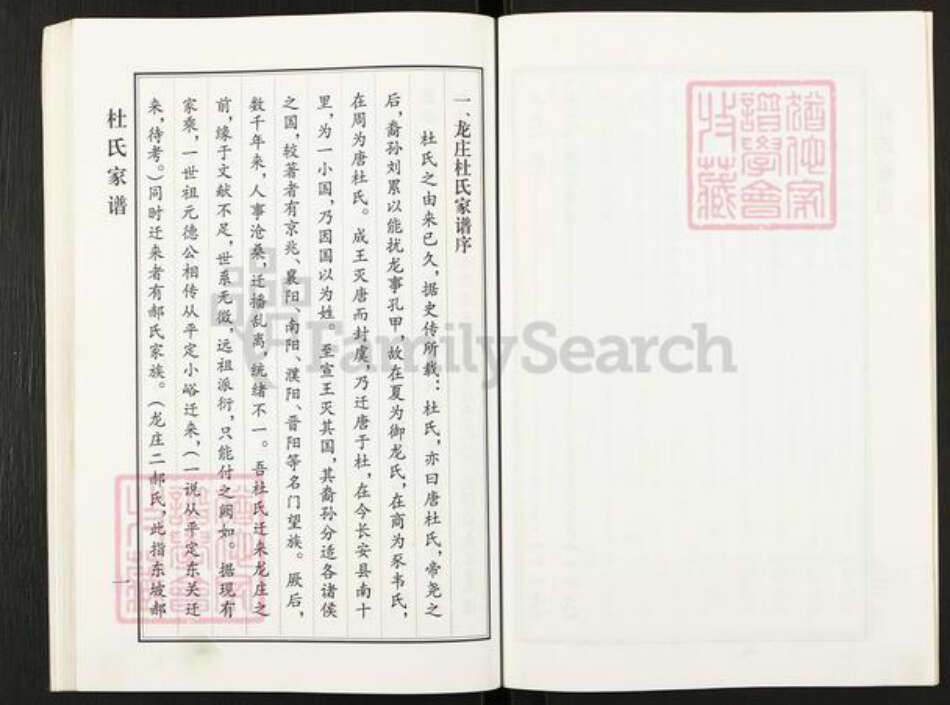 一、龙庄杜氏家谱序
杜氏之由来已久，据史传所载：杜氏，亦曰唐杜氏，帝尧之
后，裔孙刘累以能扰龙事孔甲，故在夏为御龙氏，在商为豕韦氏，
在周为唐杜氏。成王灭唐而封虞，乃迁唐于杜，在今长安县南十
里，为一小国，乃因国以为姓。至宣王灭其国，其裔孙分适各诸侯
之国，较著者有京兆、襄阳、南阳、濮阳、晋阳等名门望族。厥后，
数千年来，人事沧桑，迁播乱离，统绪不一。吾杜氏迁来龙庄之
前，缘于文献不足，世系无徵，远祖派衍，只能付之阙如。据现有
家乘，一世祖元德公相传从平定小峪迁来，（一说从平定东关迁
来，待考。）同时迁来者有郝氏家族。（龙庄二郝氏，此指东坡郝
杜氏家谱
一
犹他家
譜學會
收藏
犹他家
譜學會
收藏
FamilySearch